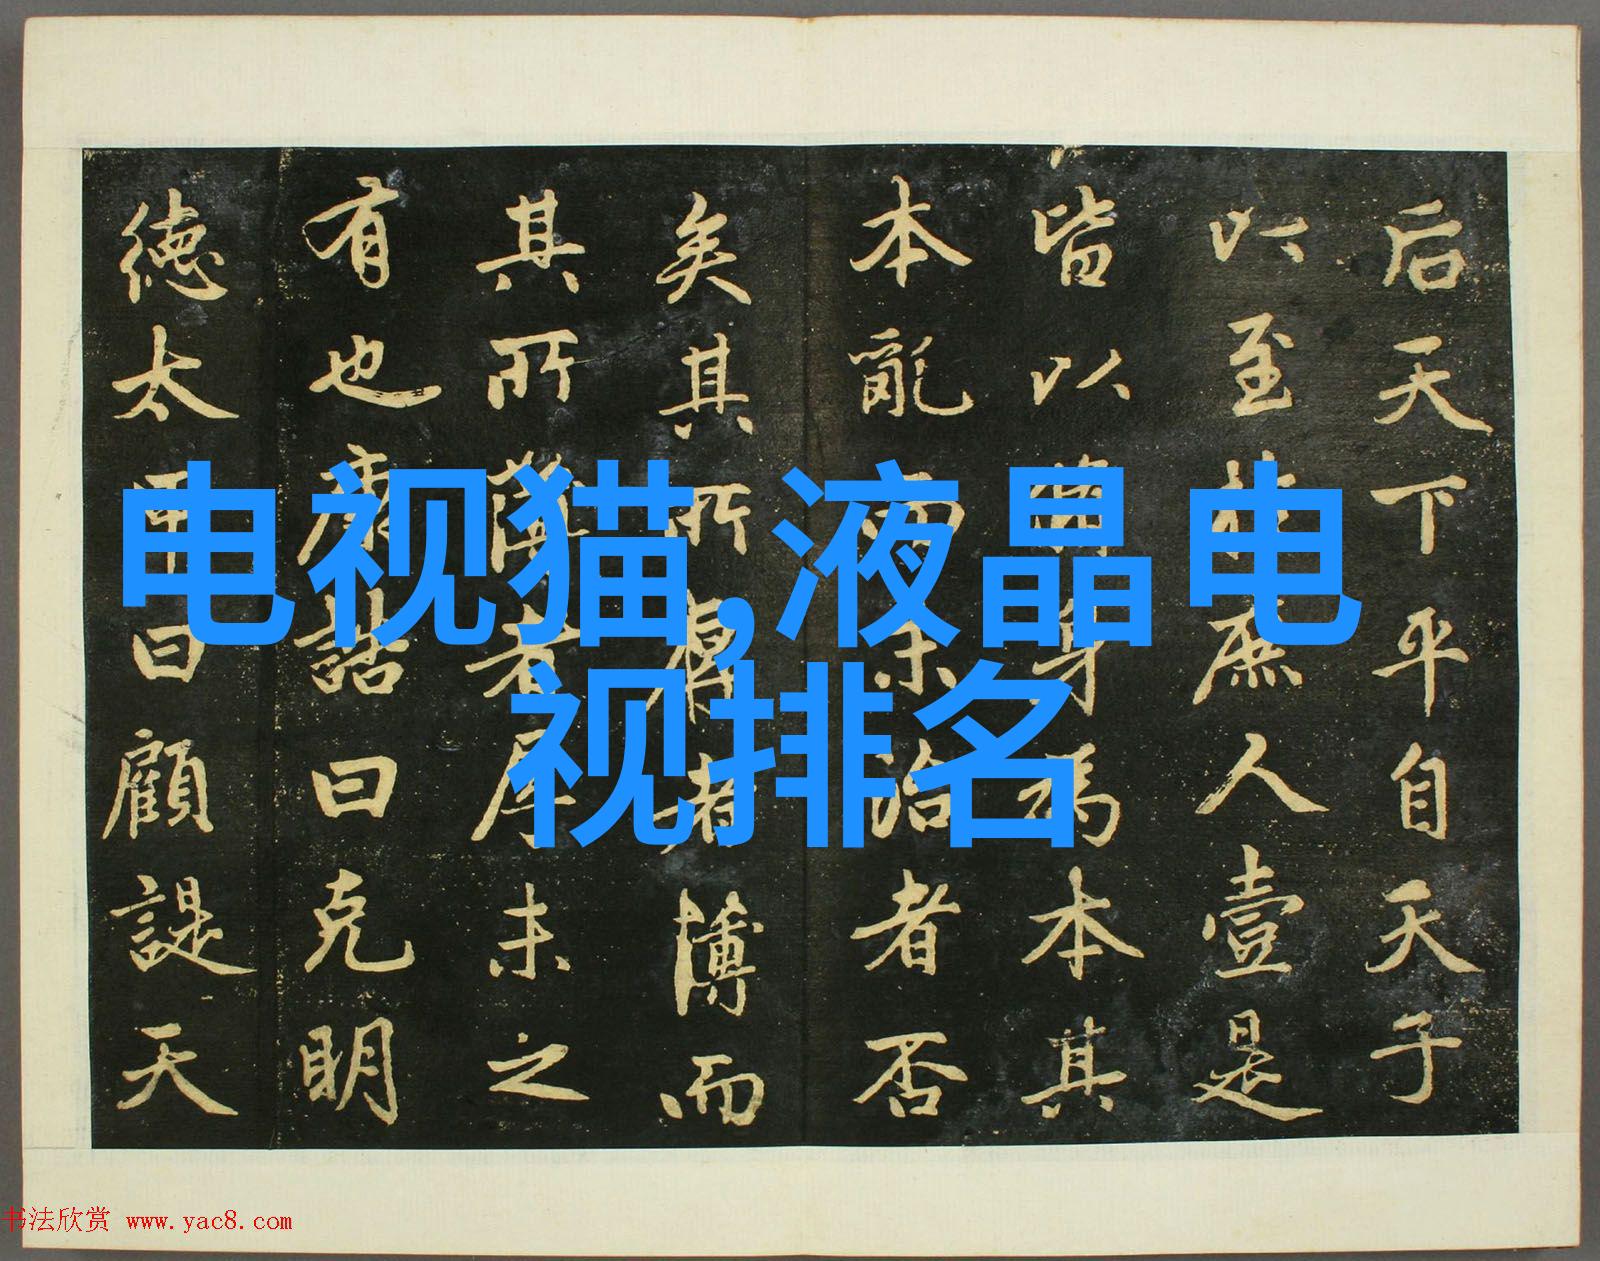 电视猫,液晶电
视排名
后天下平自天子
以至於庶人壹是
皆以身為本其
本亂而末治者否
矣其所厚者薄而
其所薄者厚未之
有也康誥曰克明
德太甲曰顧諟天
书法欣赏 www.yac8.com